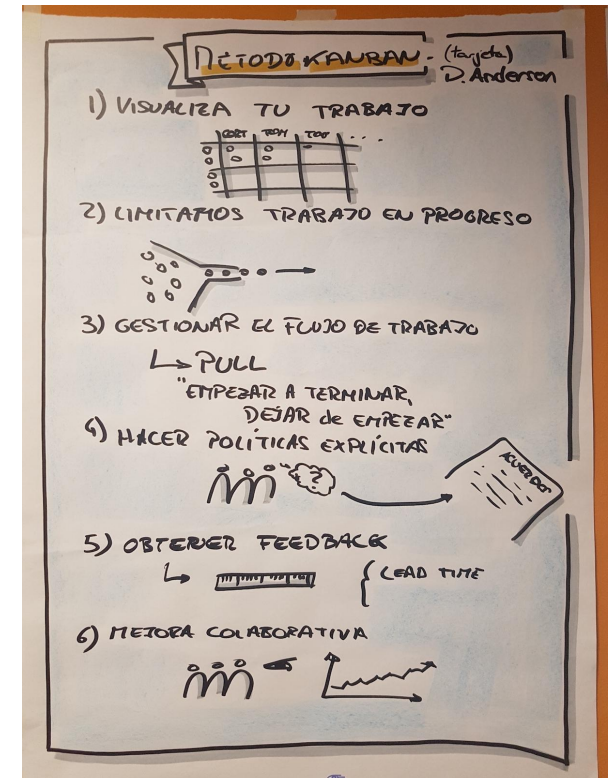 MÉTODO KANBAN - (tarjeta)
D. Anderson
1) VISUALIZA TU TRABAJO
...
2) LIMITAMOS TRABAJO EN PROGRESO
3) GESTIONAR EL FLUJO DE TRABAJO
PULL
"EMPEZAR A TERMINAR,
DEJAR de EMPEZAR"
4) HACER POLÍTICAS EXPLÍCITAS
?
ACUERDOS
5) OBTENER FEEDBACK
LEAD TIME
6) MEJORA COLABORATIVA